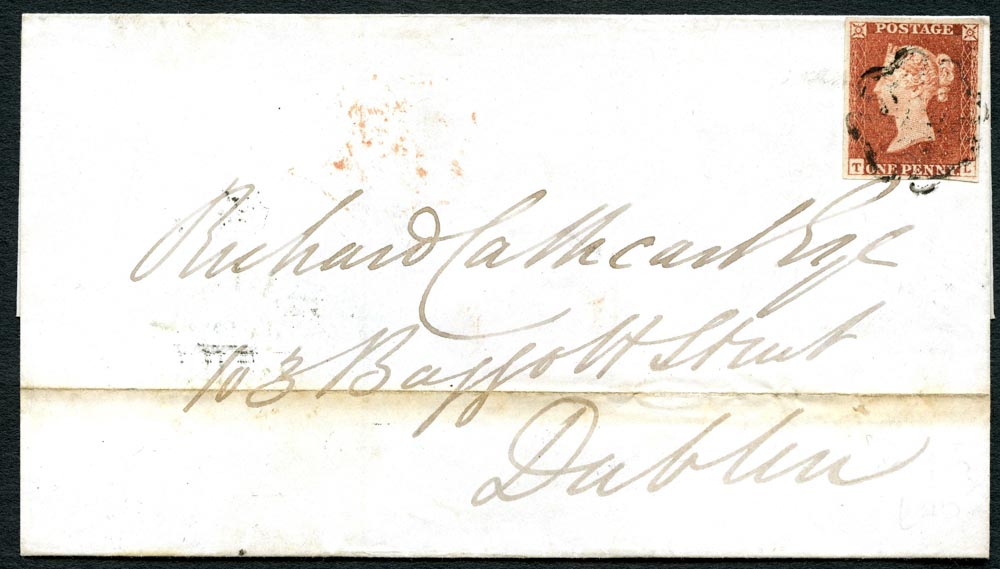 POSTAGE
T ONE PENNY L
Richard Cathcart Esqe
103 Baggott Street
Dublin